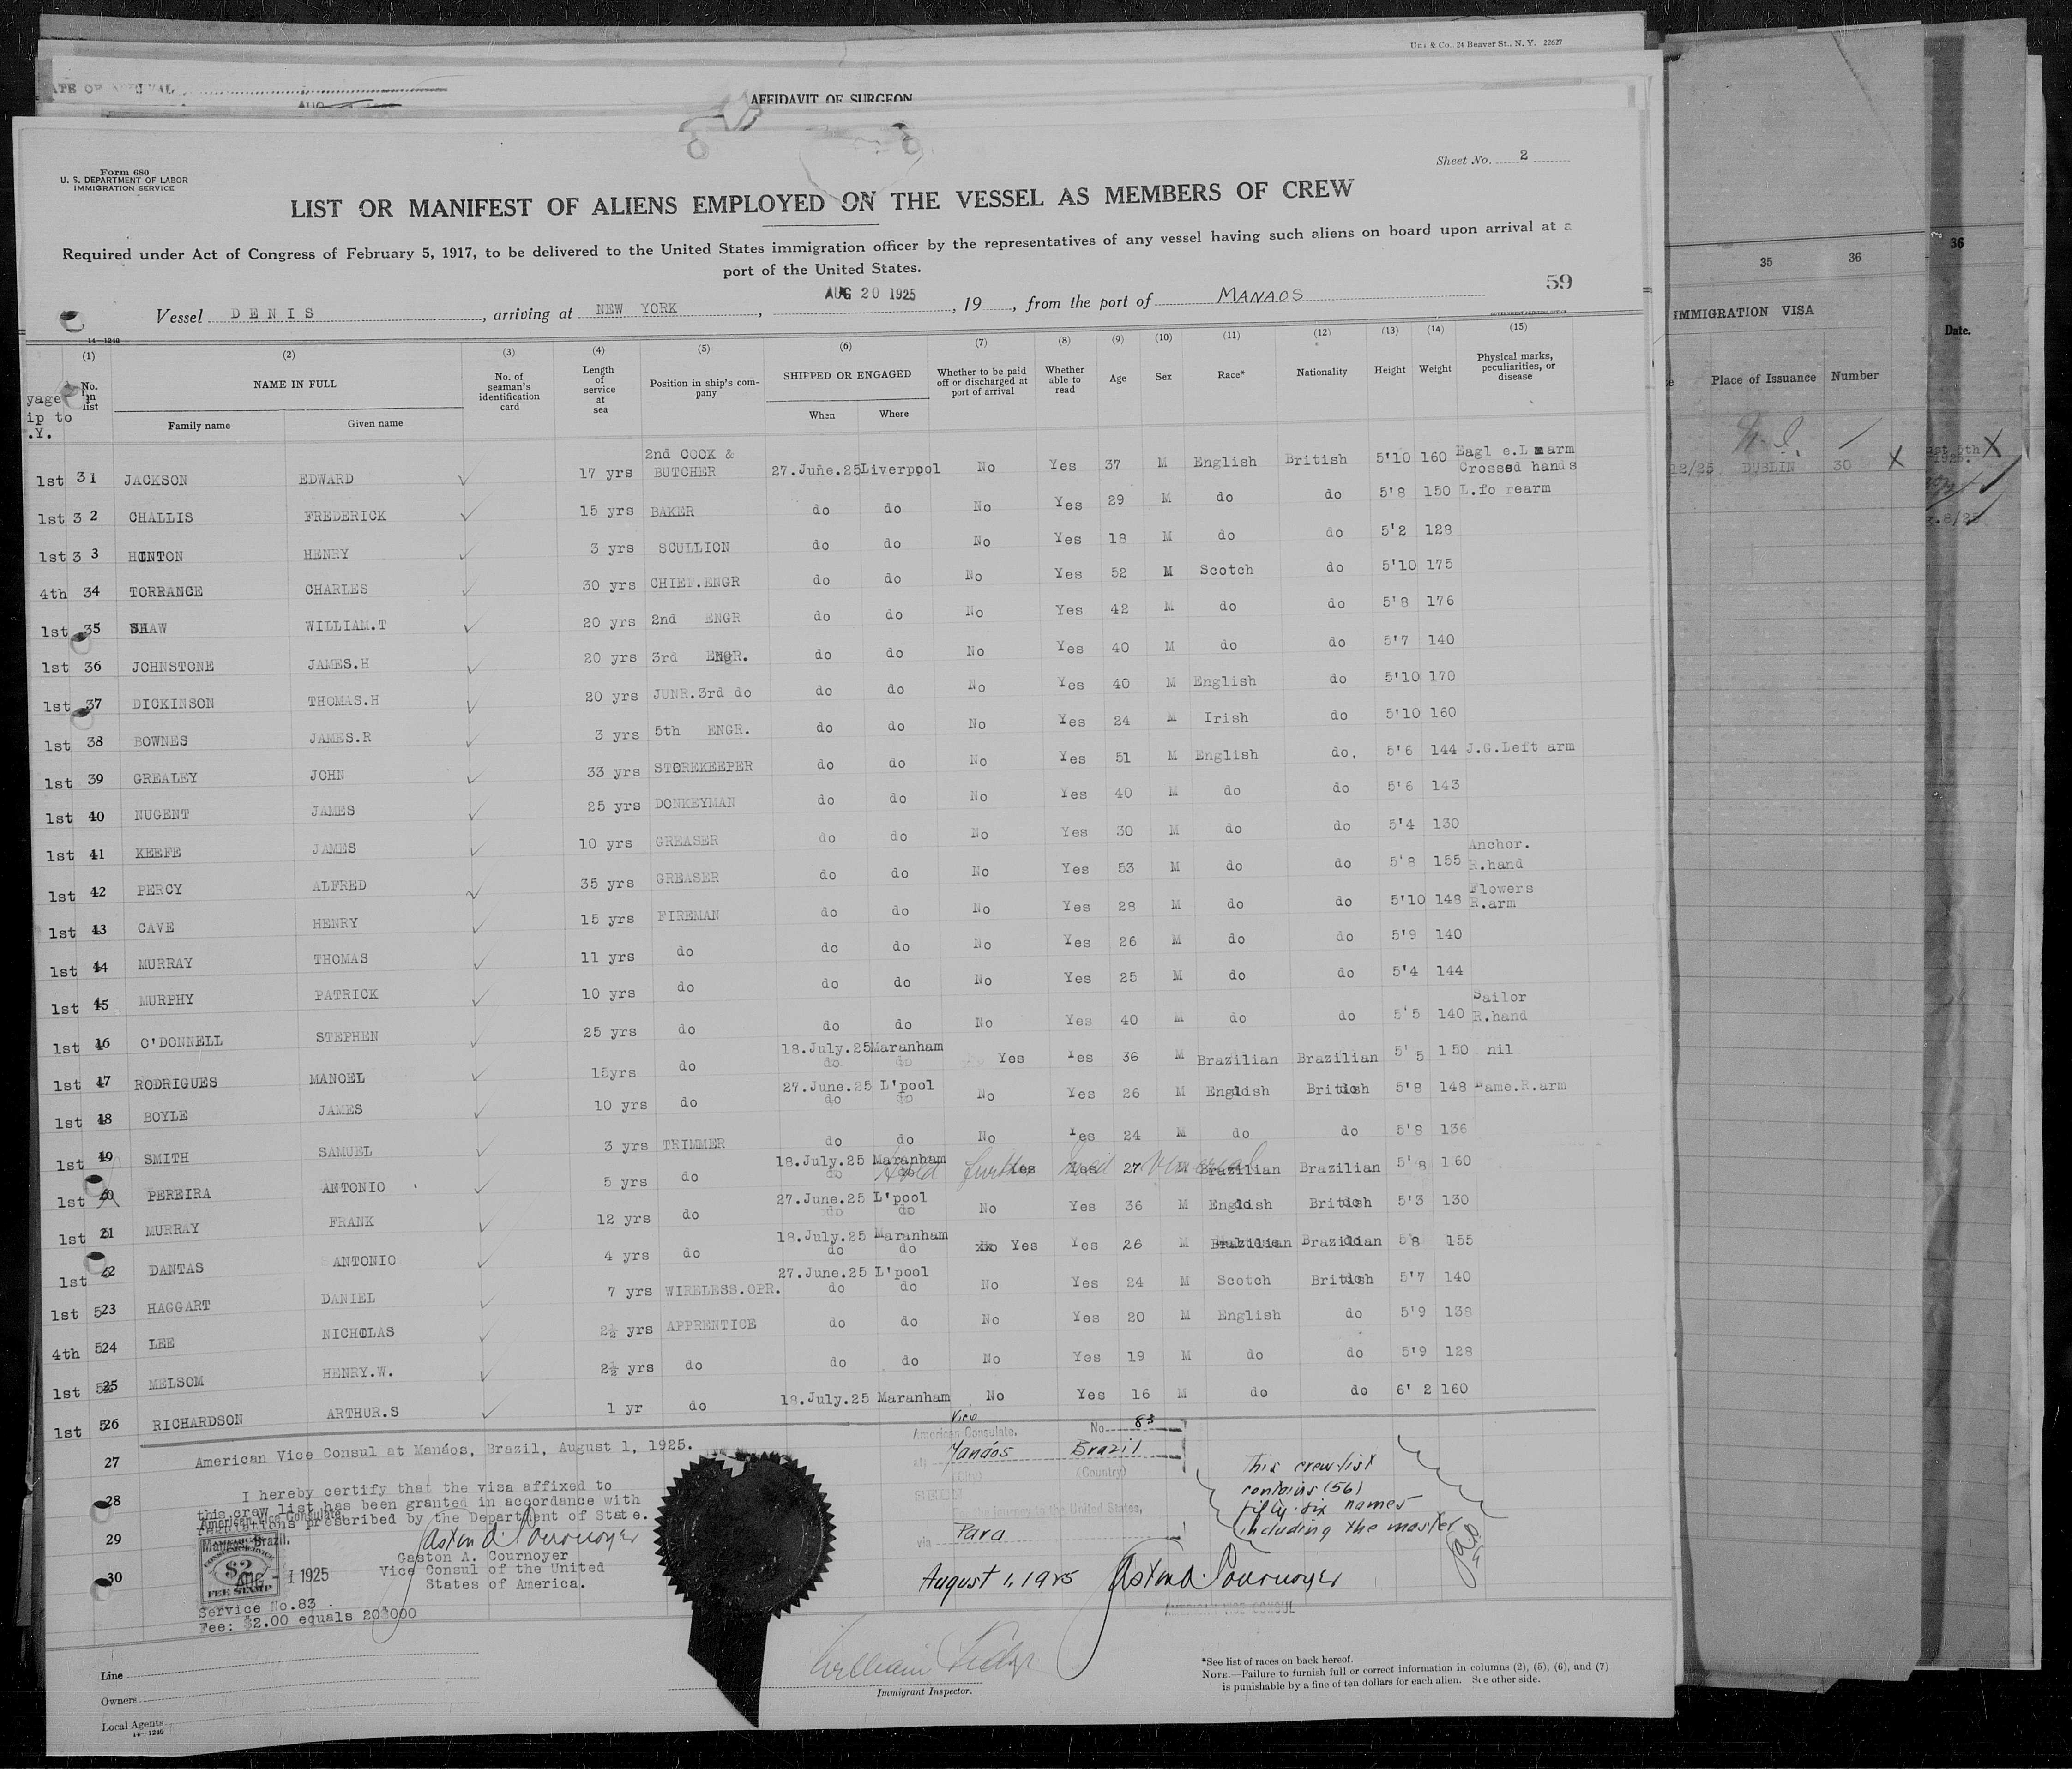 Co., 24 Beaver St., N. Y. 22627
AFFIDAVIT OF SURGEON
Form 680
U. S. DEPARTMENT OF LABOR
IMMIGRATION SERVICE
Sheet No. 2
LIST OR MANIFEST OF ALIENS EMPLOYED ON THE VESSEL AS MEMBERS OF CREW
Required under Act of Congress of February 5, 1917, to be delivered to the United States immigration officer by the representatives of any vessel having such aliens on board upon arrival at a
port of the United States.
59
Vessel DENIS, arriving at NEW YORK, AUG 20 1925, 19, from the port of MANAOS
14—1240
GOVERNMENT PRINTING OFFICE
(1) (2) (3) (4) (5) (6) (7) (8) (9) (10) (11) (12) (13) (14) (15)
yage ip to .Y. No. in list NAME IN FULL No. of seaman's identification card Length of service at sea Position in ship's company SHIPPED OR ENGAGED Whether to be paid off or discharged at port of arrival Whether able to read Age Sex Race* Nationality Height Weight Physical marks, peculiarities, or disease
Family name Given name When Where
1st 31 JACKSON EDWARD 17 yrs 2nd COOK & BUTCHER 27.June.25 Liverpool No Yes 37 M English British 5'10 160 Eagl e.L arm Crossed hands
1st 32 CHALLIS FREDERICK 15 yrs BAKER do do No Yes 29 M do do 5'8 150 L.fo rearm
1st 33 HINTON HENRY 3 yrs SCULLION do do No Yes 18 M do do 5'2 128
4th 34 TORRANCE CHARLES 30 yrs CHIEF.ENGR do do No Yes 52 M Scotch do 5'10 175
1st 35 SHAW WILLIAM.T 20 yrs 2nd ENGR do do No Yes 42 M do do 5'8 176
1st 36 JOHNSTONE JAMES.H 20 yrs 3rd ENGR. do do No Yes 40 M do do 5'7 140
1st 37 DICKINSON THOMAS.H 20 yrs JUNR.3rd do do do No Yes 40 M English do 5'10 170
1st 38 BOWNES JAMES.R 3 yrs 5th ENGR. do do No Yes 24 M Irish do 5'10 160
1st 39 GREALEY JOHN 33 yrs STOREKEEPER do do No Yes 51 M English do. 5'6 144 J.G.Left arm
1st 40 NUGENT JAMES 25 yrs DONKEYMAN do do No Yes 40 M do do 5'6 143
1st 41 KEEFE JAMES 10 yrs GREASER do do No Yes 30 M do do 5'4 130
1st 42 PERCY ALFRED 35 yrs GREASER do do No Yes 53 M do do 5'8 155 Anchor. R.hand
1st 43 CAVE HENRY 15 yrs FIREMAN do do No Yes 28 M do do 5'10 148 Flowers R.arm
1st 44 MURRAY THOMAS 11 yrs do do do No Yes 26 M do do 5'9 140
1st 45 MURPHY PATRICK 10 yrs do do do No Yes 25 M do do 5'4 144
1st 46 O'DONNELL STEPHEN 25 yrs do do do No Yes 40 M do do 5'5 140 Sailor R.hand
1st 47 RODRIGUES MANOEL 15yrs do 18.July.25 Maranham Yes Yes 36 M Brazilian Brazilian 5'5 150 nil
1st 48 BOYLE JAMES 10 yrs do 27.June.25 L'pool No Yes 26 M English British 5'8 148 Name.R.arm
1st 49 SMITH SAMUEL 3 yrs TRIMMER do do No Yes 24 M do do 5'8 136
1st 50 PEREIRA ANTONIO 5 yrs do 18.July.25 Maranham Yes Yes 27 M Brazilian Brazilian 5'8 160
1st 51 MURRAY FRANK 12 yrs do 27.June.25 L'pool No Yes 36 M English British 5'3 130
1st 52 DANTAS ANTONIO 4 yrs do 18.July.25 Maranham Yes Yes 26 M Brazilian Brazilian 5'8 155
1st 523 HAGGART DANIEL 7 yrs WIRELESS.OPR. 27.June.25 L'pool No Yes 24 M Scotch British 5'7 140
4th 524 LEE NICHOLAS 2½ yrs APPRENTICE do do No Yes 20 M English do 5'9 138
1st 525 MELSOM HENRY.W. 2½ yrs do do do No Yes 19 M do do 5'9 128
1st 526 RICHARDSON ARTHUR.S 1 yr do 18.July.25 Maranham No Yes 16 M do do 6' 2 160
27 American Vice Consul at Manáos, Brazil, August 1, 1925.
28 I hereby certify that the visa affixed to
this crew list has been granted in accordance with
regulations prescribed by the Department of State.
29 American Vice Consulate,
Manáos, Brazil.
$2
FEE STAMP
30 AUG - 1 1925
Gaston A. Cournoyer
Gaston A. Cournoyer
Vice Consul of the United
States of America.
Service No.83.
Fee: $2.00 equals 20$000
Vice
American Consulate, No. 83
at Manáos Brazil
(City) (Country)
For the journey to the United States,
via Para
August 1, 1925 Gaston A. Cournoyer
AMERICAN VICE CONSUL
This crew list
contains (56)
fifty-six names
including the master
Line
Owners
Local Agents
14—1240
Immigrant Inspector.
*See list of races on back hereof.
NOTE.—Failure to furnish full or correct information in columns (2), (5), (6), and (7)
is punishable by a fine of ten dollars for each alien. See other side.
35 36
IMMIGRATION VISA
Place of Issuance Number
12/25 DUBLIN 30 X
36
Date.
1925.
8/25